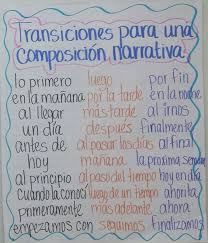 Transiciones para una
composición narrativa
lo primero luego por fin
en la mañana por la tarde en la noche
al llegar más tarde al irnos
un día después finalmente
antes de al pasar los días al final
hoy mañana la próxima semana
al principio al paso del tiempo hoy en día
cuando la conocí luego de un tiempo ahorita
primeramente más adelante ahora
empezamos con seguimos finalizamos